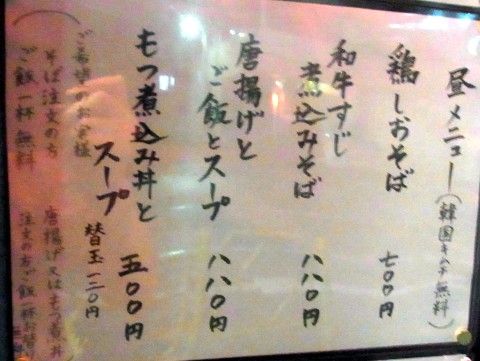 昼メニュー（韓国キムチ無料）
鶏しおそば 七〇〇円
和牛すじ
煮込みそば 八八〇円
唐揚げと
ご飯とスープ 八八〇円
もつ煮込み丼と
スープ 五〇〇円
替玉一二〇円
（ご希望のお客様
そば注文の方
ご飯一杯無料
唐揚げ又はもつ煮丼
注文の方ご飯一杯お替り
無料